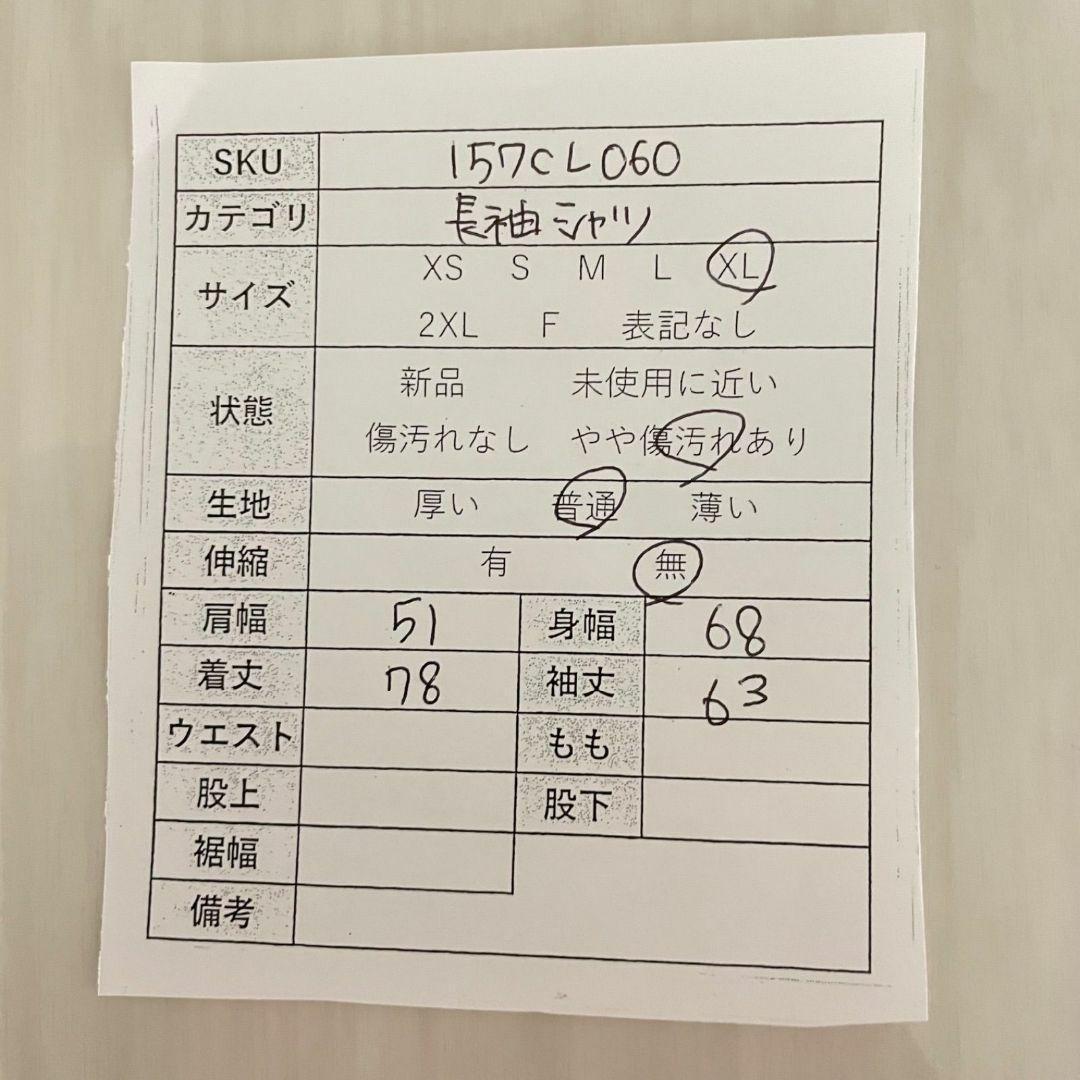 SKU 157CL060
カテゴリ 長袖シャツ
サイズ XS S M L XL
2XL F 表記なし
状態 新品 未使用に近い
傷汚れなし やや傷汚れあり
生地 厚い 普通 薄い
伸縮 有 無
肩幅 51 身幅 68
着丈 78 袖丈 63
ウエスト もも
股上 股下
裾幅
備考